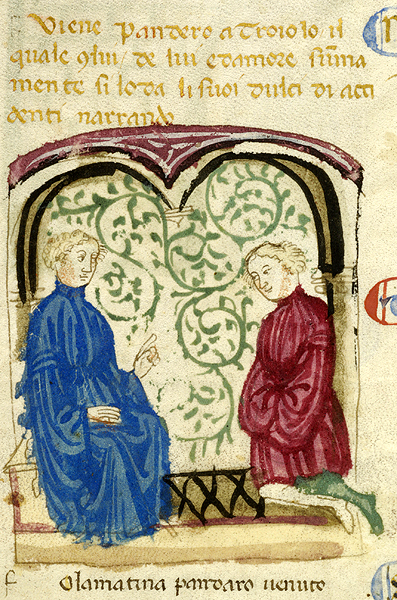 Viene Pandero a Troiolo il
quale 9lui de lui ed amore suma
mente si loda li suoi dulci di acci
denti narrando
C
C
f
Olamatina pandaro venuto